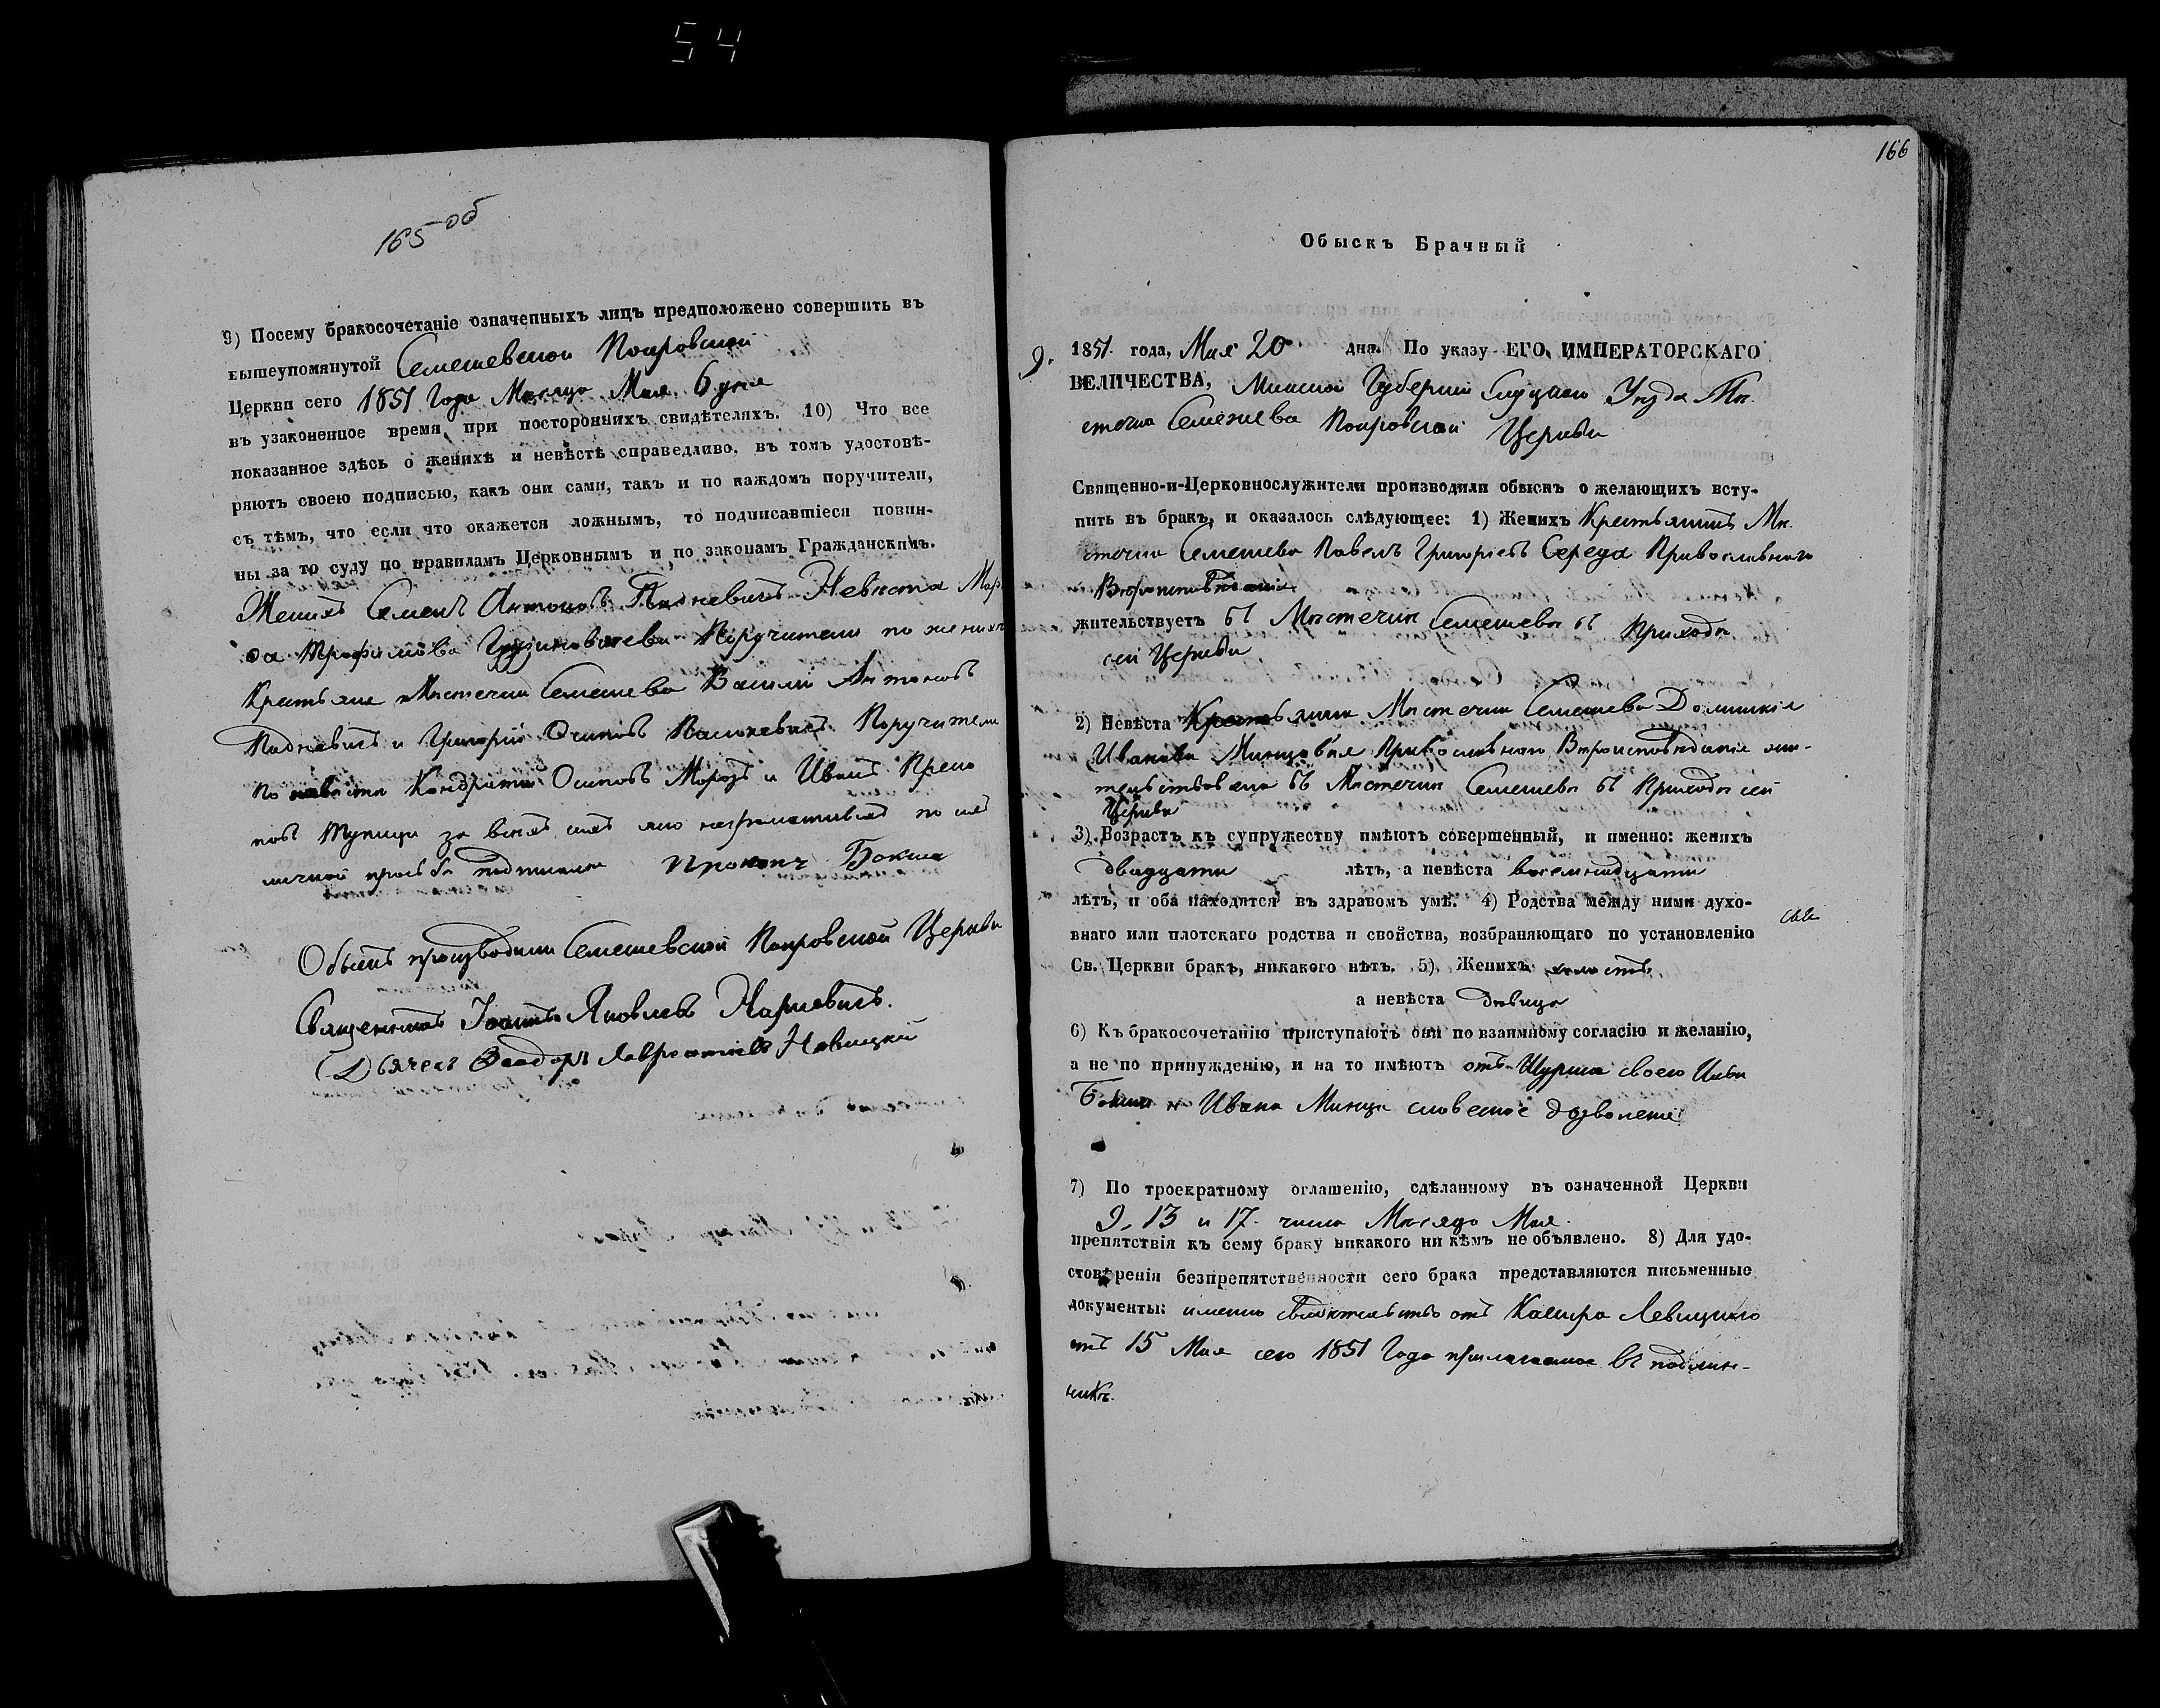 54
165 об
9) Посему бракосочетаніе означенныхъ лицъ предположено совершить въ
вышеупомянутой Семежевской Покровской
Церкви сего 1851 Года Месяца Мая 6 дня
въ узаконенное время при постороннихъ свидѣтеляхъ. 10) Что все
показанное здѣсь о женихѣ и невѣстѣ справедливо, въ томъ удостовѣ-
ряютъ своею подписью, какъ они сами, такъ и по каждомъ поручители,
съ тѣмъ, что если что окажется ложнымъ, то подписавшіеся повин-
ны за то суду по правиламъ Церковнымъ и по законамъ Гражданскимъ.
Женихъ Семенъ Антоновъ Невѣста
Трофимова Поручители по женихѣ
Крестьяне Мѣстечка Семежева Василій Антоновъ
и Григорій Осиповъ Поручители
по невѣсти Кондратій Осиповъ Морозъ и Иванъ
за всѣхъ ихъ по ихъ
личной прозьбѣ подписался Прокопъ Бокша
Обыскъ производили Семежевской Покровской Церкви
Священникъ Іоаннъ Яковлевъ
Дьячекъ Ѳеодоръ Лаврентіевъ Новицкій
166
Обыскъ Брачный
9. 1851 года, Мая 20 дня. По указу ЕГО ИМПЕРАТОРСКАГО
ВЕЛИЧЕСТВА, Минской Губерніи Слуцкого Уезда Мѣ-
стечка Семежева Покровской Церкви
Священно-и-Церковнослужители производили обыскъ о желающихъ всту-
пить въ бракъ, и оказалось слѣдующее: 1) Женихъ Крестьянинъ Мѣ-
стечка Семежева Павелъ Григоріевъ Середа Православнаго
Вѣроисповѣданія
жительствуетъ въ Мѣстечкѣ Семежевѣ въ Приходѣ
сей Церкви
2) Невѣста Крестьянка Мѣстечка Семежева Доминикія
Иванова Православнаго Вѣроисповѣданія жи-
тельствовала въ Мѣстечкѣ Семежевѣ въ Приходѣ сей
Церкви
3) Возрастъ къ супружеству имѣютъ совершенный, и именно: женихъ
двадцати лѣтъ, а невѣста восемнадцати
лѣтъ, и оба находятся въ здравомъ умѣ. 4) Родства между ними духо-
внаго или плотскаго родства и свойства, возбраняющаго по установленію
Св. Церкви бракъ, никакого нѣтъ. 5) Женихъ холостъ
а невѣста дѣвица
6) Къ бракосочетанію приступаютъ они по взаимному согласію и желанію,
а не по принужденію, и на то имѣютъ отъ Шурина своего
и Ивана словесное дозволеніе
7) По троекратному оглашенію, сдѣланному въ означенной Церкви
9, 13 и 17 числа Месяца Мая
препятствія къ сему браку никакого ни кѣмъ не объявлено. 8) Для удо-
стовѣренія безпрепятственности сего брака представляются письменные
документы: именно свидѣтельство отъ Левицкаго
отъ 15 Мая сего 1851 Года прилагаемое въ подлин-
никѣ.